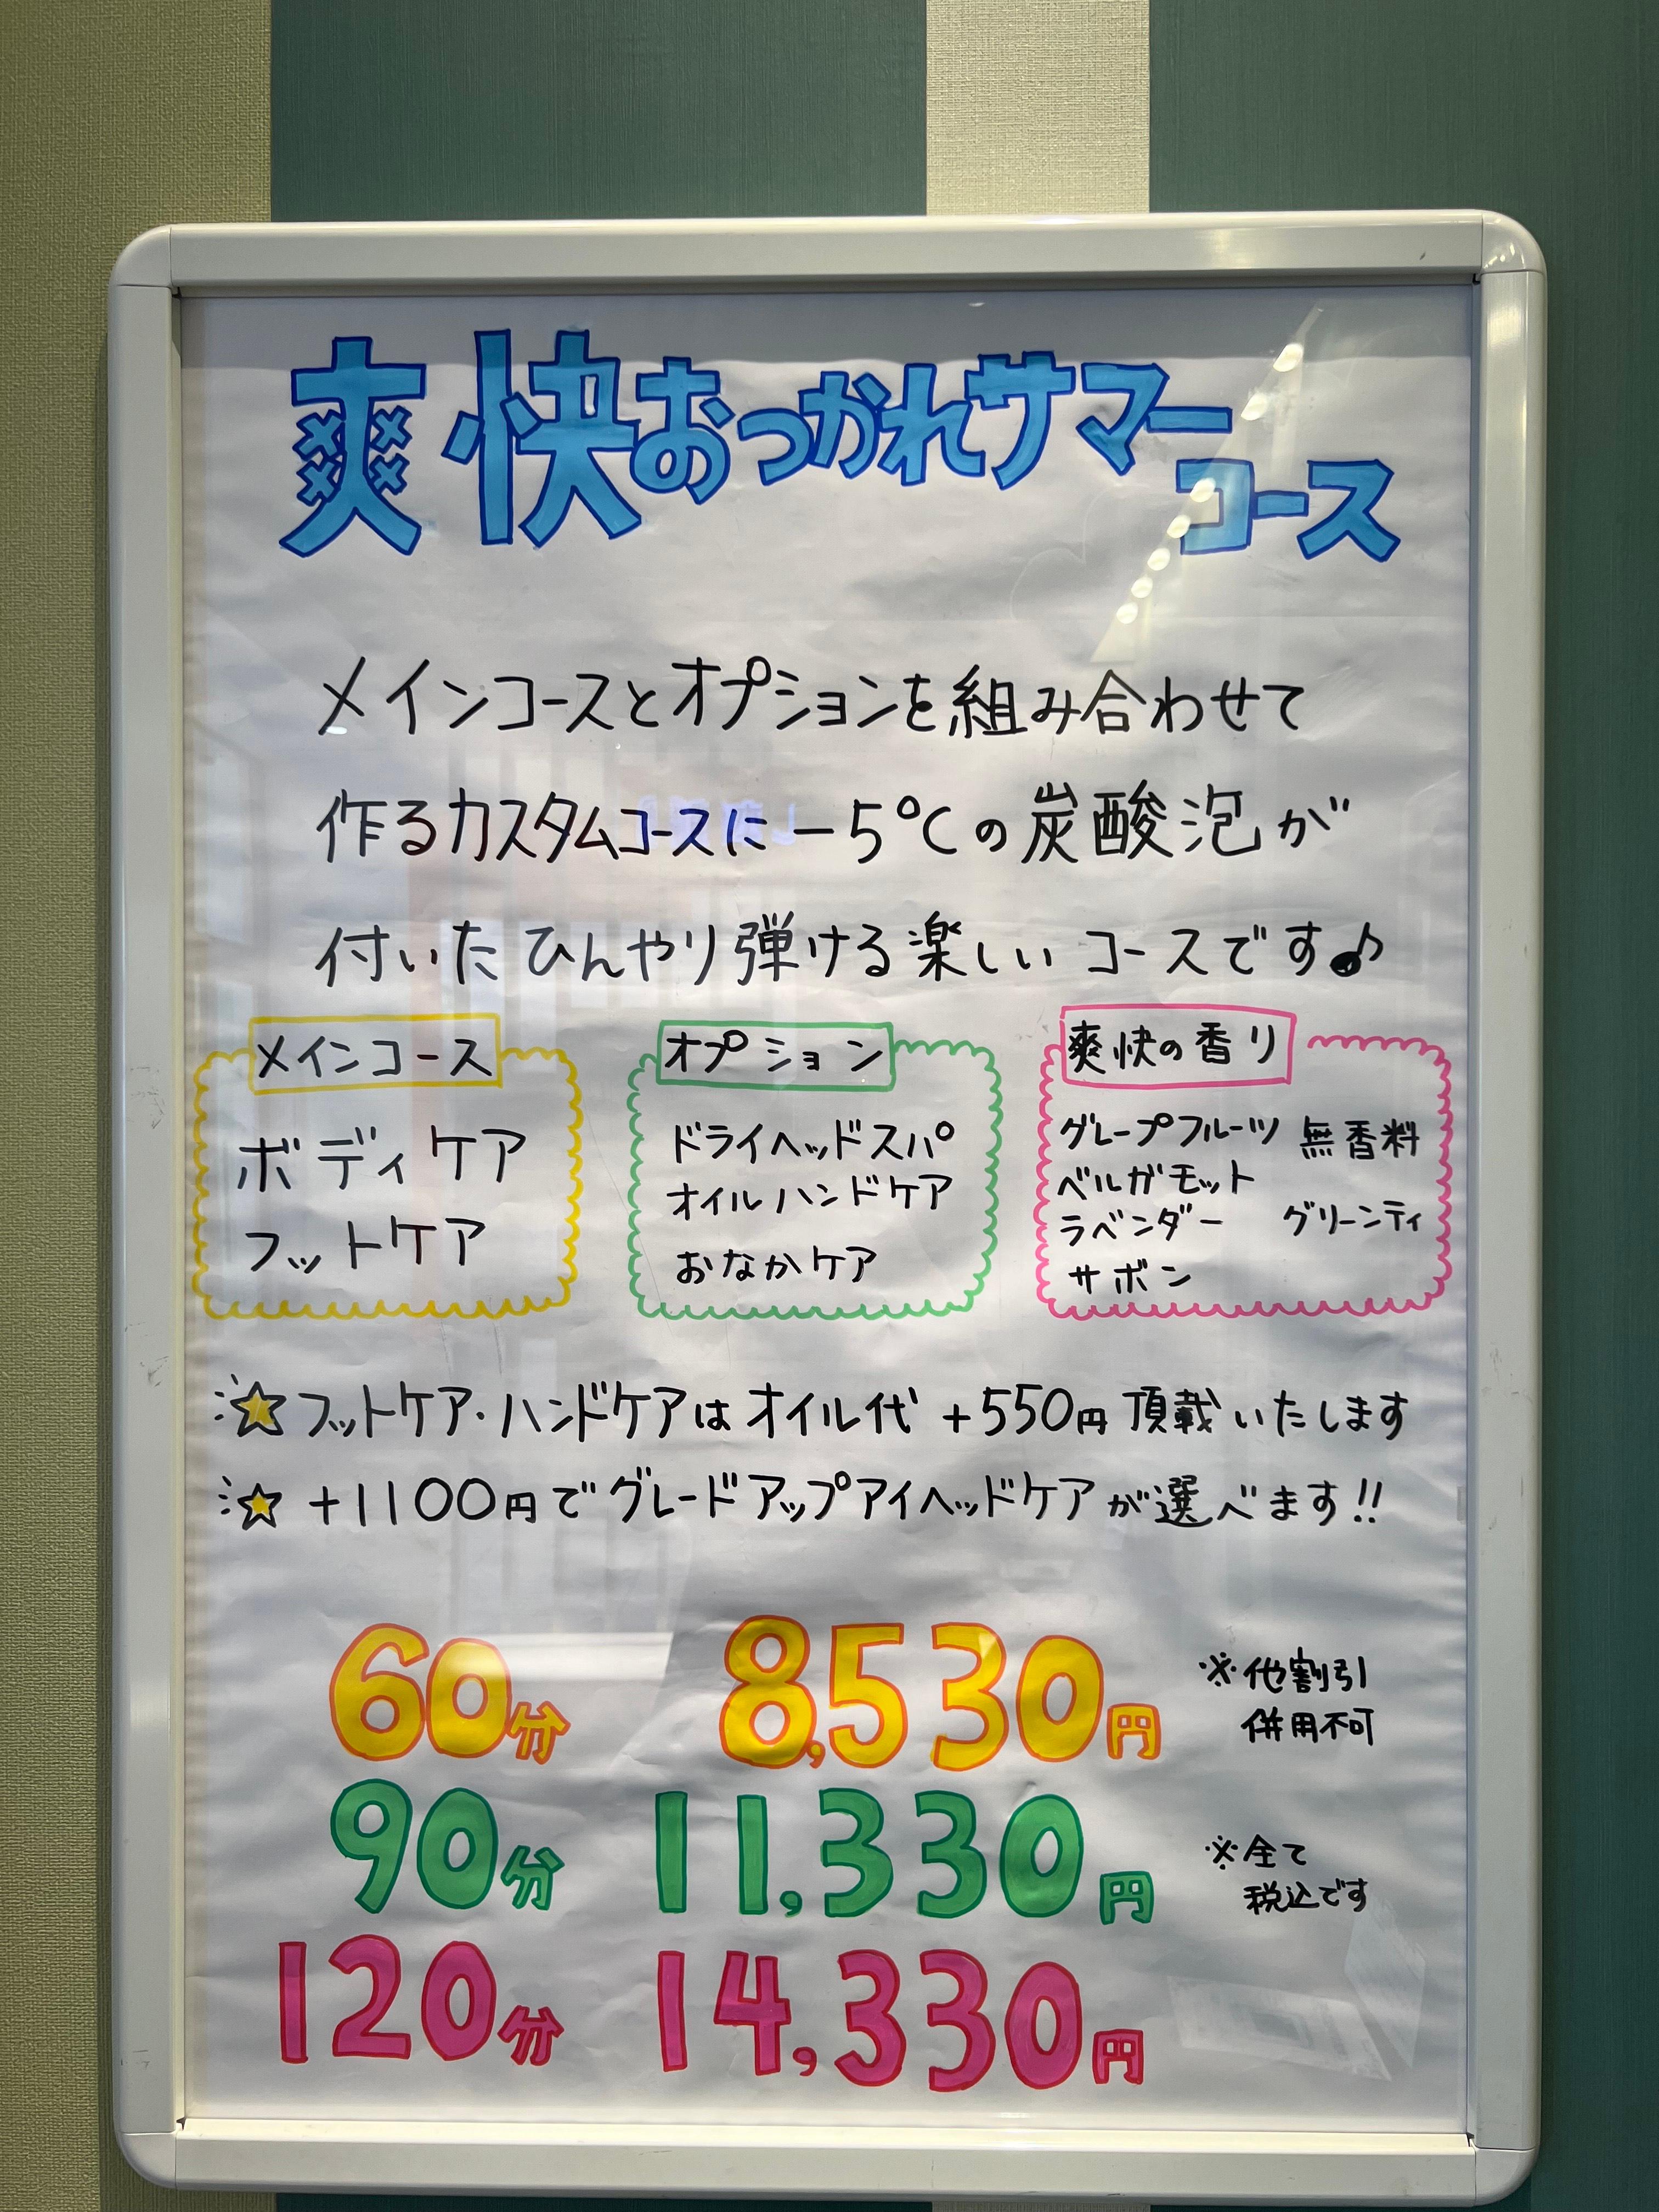 爽快おつかれサマー
コース
メインコースとオプションを組み合わせて
作るカスタムコースに－5℃の炭酸泡が
付いたひんやり弾ける楽しいコースです♪
メインコース
ボディケア
フットケア
オプション
ドライヘッドスパ
オイルハンドケア
おなかケア
爽快の香り
グレープフルーツ 無香料
ベルガモット
ラベンダー グリーンティ
サボン
☆フットケア・ハンドケアはオイル代+550円頂載いたします
☆+1100円でグレードアップアイヘッドケアが選べます!!
60分 8,530円
※他割引
併用不可
90分 11,330円
※全て
税込です
120分 14,330円